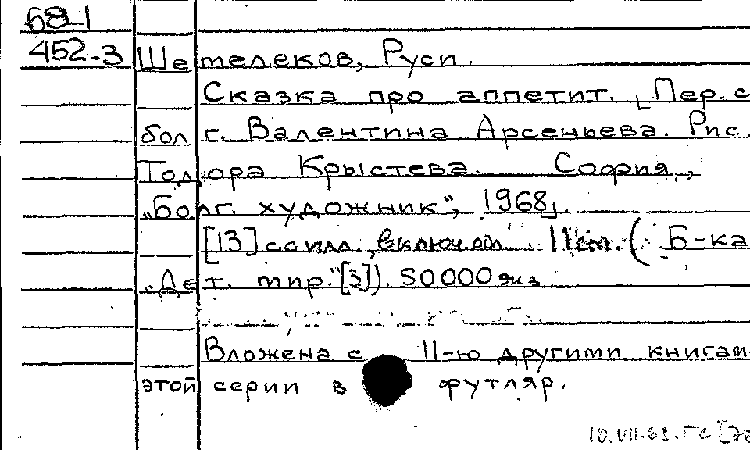 68-1
452-3 Шетелеков, Руси.
Сказка про аппетит. [Пер. с
болг. Валентина Арсеньева. Рис.
Тодора Крыстева. София,
„Болг. художник“, 1968].
[13] с. с илл., включая 11 ст. (Б-ка
„Дет. мир“ [3]) 50000 экз
Вложена с 11-ю другими книгами
этой серии в футляр.